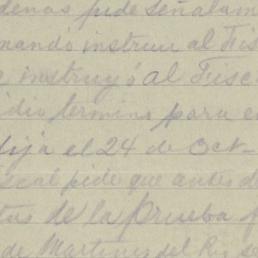 denas pide señalam
mandó instruir al Fis
e instruyó al Fisc
idio termino para e
fija el 24 de Oct-
scal pide que antes d
tas de la Prueba f
de Martinez del Rio se